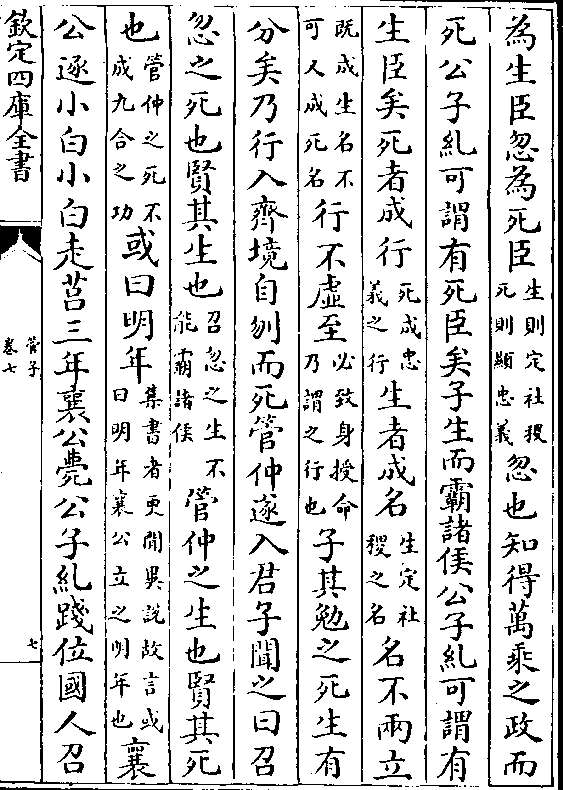 為生臣忽為死臣生則定社稷死則顯忠義忽也知得萬乘之政而
死公子糺可謂有死臣矣子生而霸諸侯公子糺可謂有
生臣矣死者成行死成忠義之行生者成名生定社稷之名名不兩立
既成生名不可又成死名行不虛至必致身授命乃謂之行也子其勉之死生有
分矣乃行入齊境自刎而死管仲遂入君子聞之曰召
忽之死也賢其生也召忽之生不能霸諸侯管仲之生也賢其死
也管仲之死不成九合之功或曰明年集書者更聞異說故言或曰明年襄公立之明年也襄
公逐小白小白走莒三年襄公薨公子糺踐位國人召
欽定四庫全書
管子
卷七
七